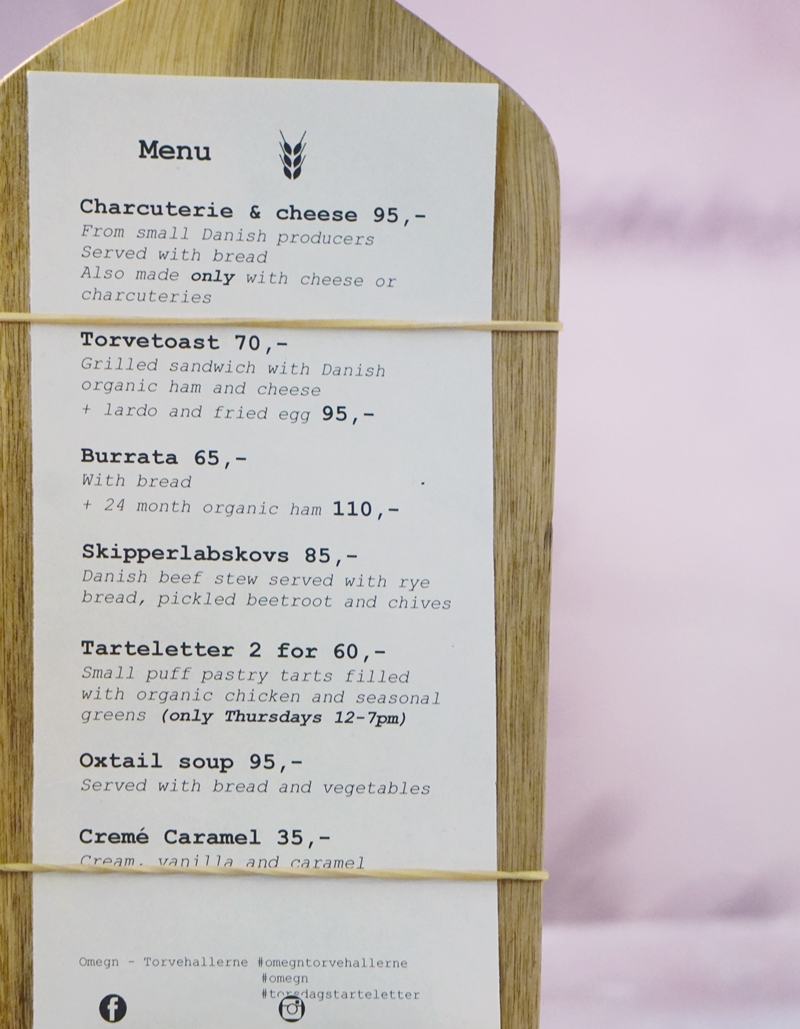 Menu
Charcuterie & cheese 95,-
From small Danish producers
Served with bread
Also made only with cheese or
charcuteries
Torvetoast 70,-
Grilled sandwich with Danish
organic ham and cheese
+ lardo and fried egg 95,-
Burrata 65,-
With bread
+ 24 month organic ham 110,-
Skipperlabskovs 85,-
Danish beef stew served with rye
bread, pickled beetroot and chives
Tarteletter 2 for 60,-
Small puff pastry tarts filled
with organic chicken and seasonal
greens (only Thursdays 12-7pm)
Oxtail soup 95,-
Served with bread and vegetables
Cremé Caramel 35,-
Cream, vanilla and caramel
Omegn - Torvehallerne #omegntorvehallerne
#omegn
#torsdagstarteletter